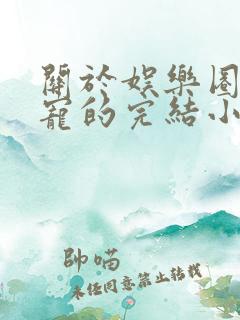 關於娛樂圈
寵的完結小
帥喵
未经同意禁止转载